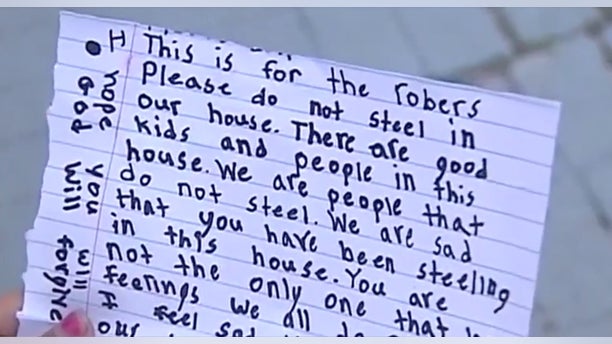 This is for the robers
Please do not steel in
our house. There are good
kids and people in this
house. We are people that
do not steel. We are sad
that you have been steeling
in this house. You are
not the only one that
feerings we all
I feel
our
H
nope you will
God will forgive